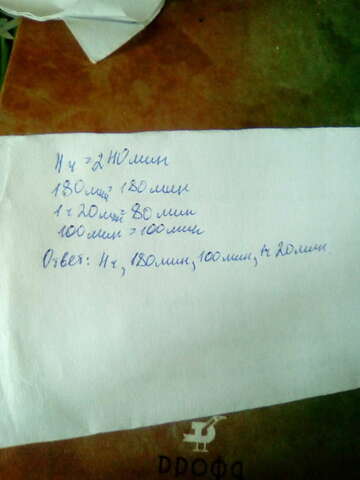 4ч = 240мин
180мин = 180мин
1ч 20мин = 80мин
100мин = 100мин
Ответ: 4ч, 180мин, 100мин, 1ч 20мин.
ДРОФА